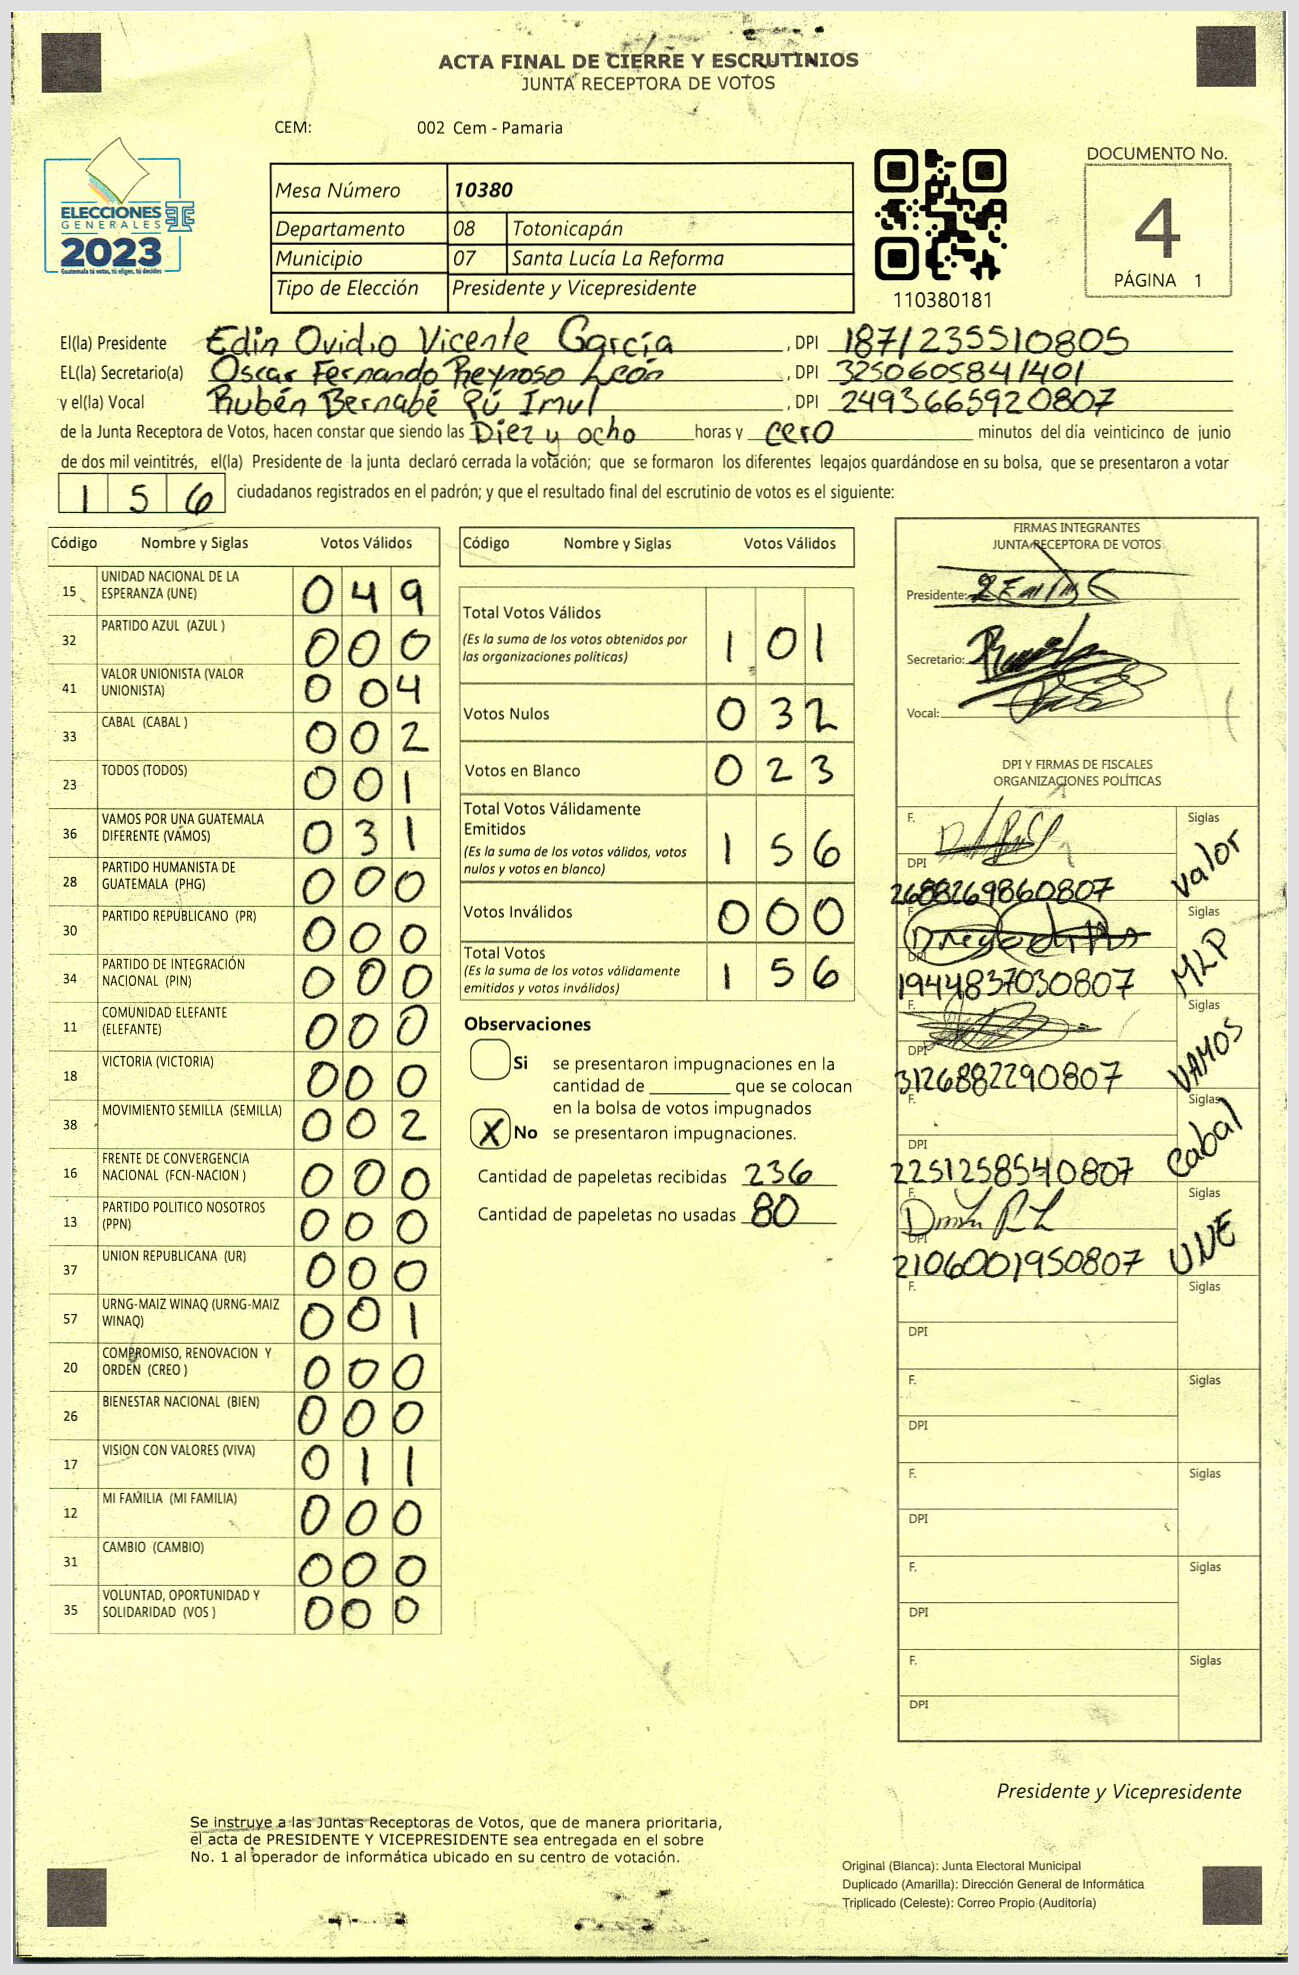 ACTA FINAL DE CIERRE Y ESCRUTINIOS
JUNTA RECEPTORA DE VOTOS
CEM: 002 Cem - Pamaria
DOCUMENTO No.
4
PÁGINA 1
ELECCIONES
GENERALES
2023
Guatemala tú votas, tú eliges, tú decides
Mesa Número 10380
Departamento 08 Totonicapán
Municipio 07 Santa Lucía La Reforma
Tipo de Elección Presidente y Vicepresidente
110380181
El(la) Presidente Edin Ovidio Vicente García , DPI 1871235510805
EL(la) Secretario(a) Oscar Fernando Reynoso León , DPI 3250605841401
y el(la) Vocal Rubén Bernabé Pú Imul , DPI 2493665920807
de la Junta Receptora de Votos, hacen constar que siendo las Diez y ocho horas y cero minutos del día veinticinco de junio
de dos mil veintitrés, el(la) Presidente de la junta declaró cerrada la votación; que se formaron los diferentes legajos guardándose en su bolsa, que se presentaron a votar
1 5 6 ciudadanos registrados en el padrón; y que el resultado final del escrutinio de votos es el siguiente:
Código Nombre y Siglas Votos Válidos
15 UNIDAD NACIONAL DE LA ESPERANZA (UNE) 0 4 9
32 PARTIDO AZUL (AZUL ) 0 0 0
41 VALOR UNIONISTA (VALOR UNIONISTA) 0 0 4
33 CABAL (CABAL ) 0 0 2
23 TODOS (TODOS) 0 0 1
36 VAMOS POR UNA GUATEMALA DIFERENTE (VAMOS) 0 3 1
28 PARTIDO HUMANISTA DE GUATEMALA (PHG) 0 0 0
30 PARTIDO REPUBLICANO (PR) 0 0 0
34 PARTIDO DE INTEGRACIÓN NACIONAL (PIN) 0 0 0
11 COMUNIDAD ELEFANTE (ELEFANTE) 0 0 0
18 VICTORIA (VICTORIA) 0 0 0
38 MOVIMIENTO SEMILLA (SEMILLA) 0 0 2
16 FRENTE DE CONVERGENCIA NACIONAL (FCN-NACION ) 0 0 0
13 PARTIDO POLITICO NOSOTROS (PPN) 0 0 0
37 UNION REPUBLICANA (UR) 0 0 0
57 URNG-MAIZ WINAQ (URNG-MAIZ WINAQ) 0 0 1
20 COMPROMISO, RENOVACION Y ORDEN (CREO ) 0 0 0
26 BIENESTAR NACIONAL (BIEN) 0 0 0
17 VISION CON VALORES (VIVA) 0 1 1
12 MI FAMILIA (MI FAMILIA) 0 0 0
31 CAMBIO (CAMBIO) 0 0 0
35 VOLUNTAD, OPORTUNIDAD Y SOLIDARIDAD (VOS ) 0 0 0
Código Nombre y Siglas Votos Válidos
Total Votos Válidos 1 0 1
(Es la suma de los votos obtenidos por
las organizaciones políticas)
Votos Nulos 0 3 2
Votos en Blanco 0 2 3
Total Votos Válidamente
Emitidos 1 5 6
(Es la suma de los votos válidos, votos
nulos y votos en blanco)
Votos Inválidos 0 0 0
Total Votos 1 5 6
(Es la suma de los votos válidamente
emitidos y votos inválidos)
Observaciones
Si se presentaron impugnaciones en la
cantidad de que se colocan
en la bolsa de votos impugnados
X No se presentaron impugnaciones.
Cantidad de papeletas recibidas 236
Cantidad de papeletas no usadas 80
FIRMAS INTEGRANTES
JUNTA RECEPTORA DE VOTOS
Presidente:
Secretario:
Vocal:
DPI Y FIRMAS DE FISCALES
ORGANIZACIONES POLÍTICAS
F. Siglas valor
DPI 2688269860807
F. Siglas MLP
DPI 1944837030807
F. Siglas VAMOS
DPI 3126882290807
F. Siglas Cabal
DPI 2251258540807
F. Siglas UNE
DPI 2106001950807
F. Siglas
DPI
F. Siglas
DPI
F. Siglas
DPI
F. Siglas
DPI
F. Siglas
DPI
Presidente y Vicepresidente
Se instruye a las Juntas Receptoras de Votos, que de manera prioritaria,
el acta de PRESIDENTE Y VICEPRESIDENTE sea entregada en el sobre
No. 1 al operador de informática ubicado en su centro de votación.
Original (Blanca): Junta Electoral Municipal
Duplicado (Amarilla): Dirección General de Informática
Triplicado (Celeste): Correo Propio (Auditoría)